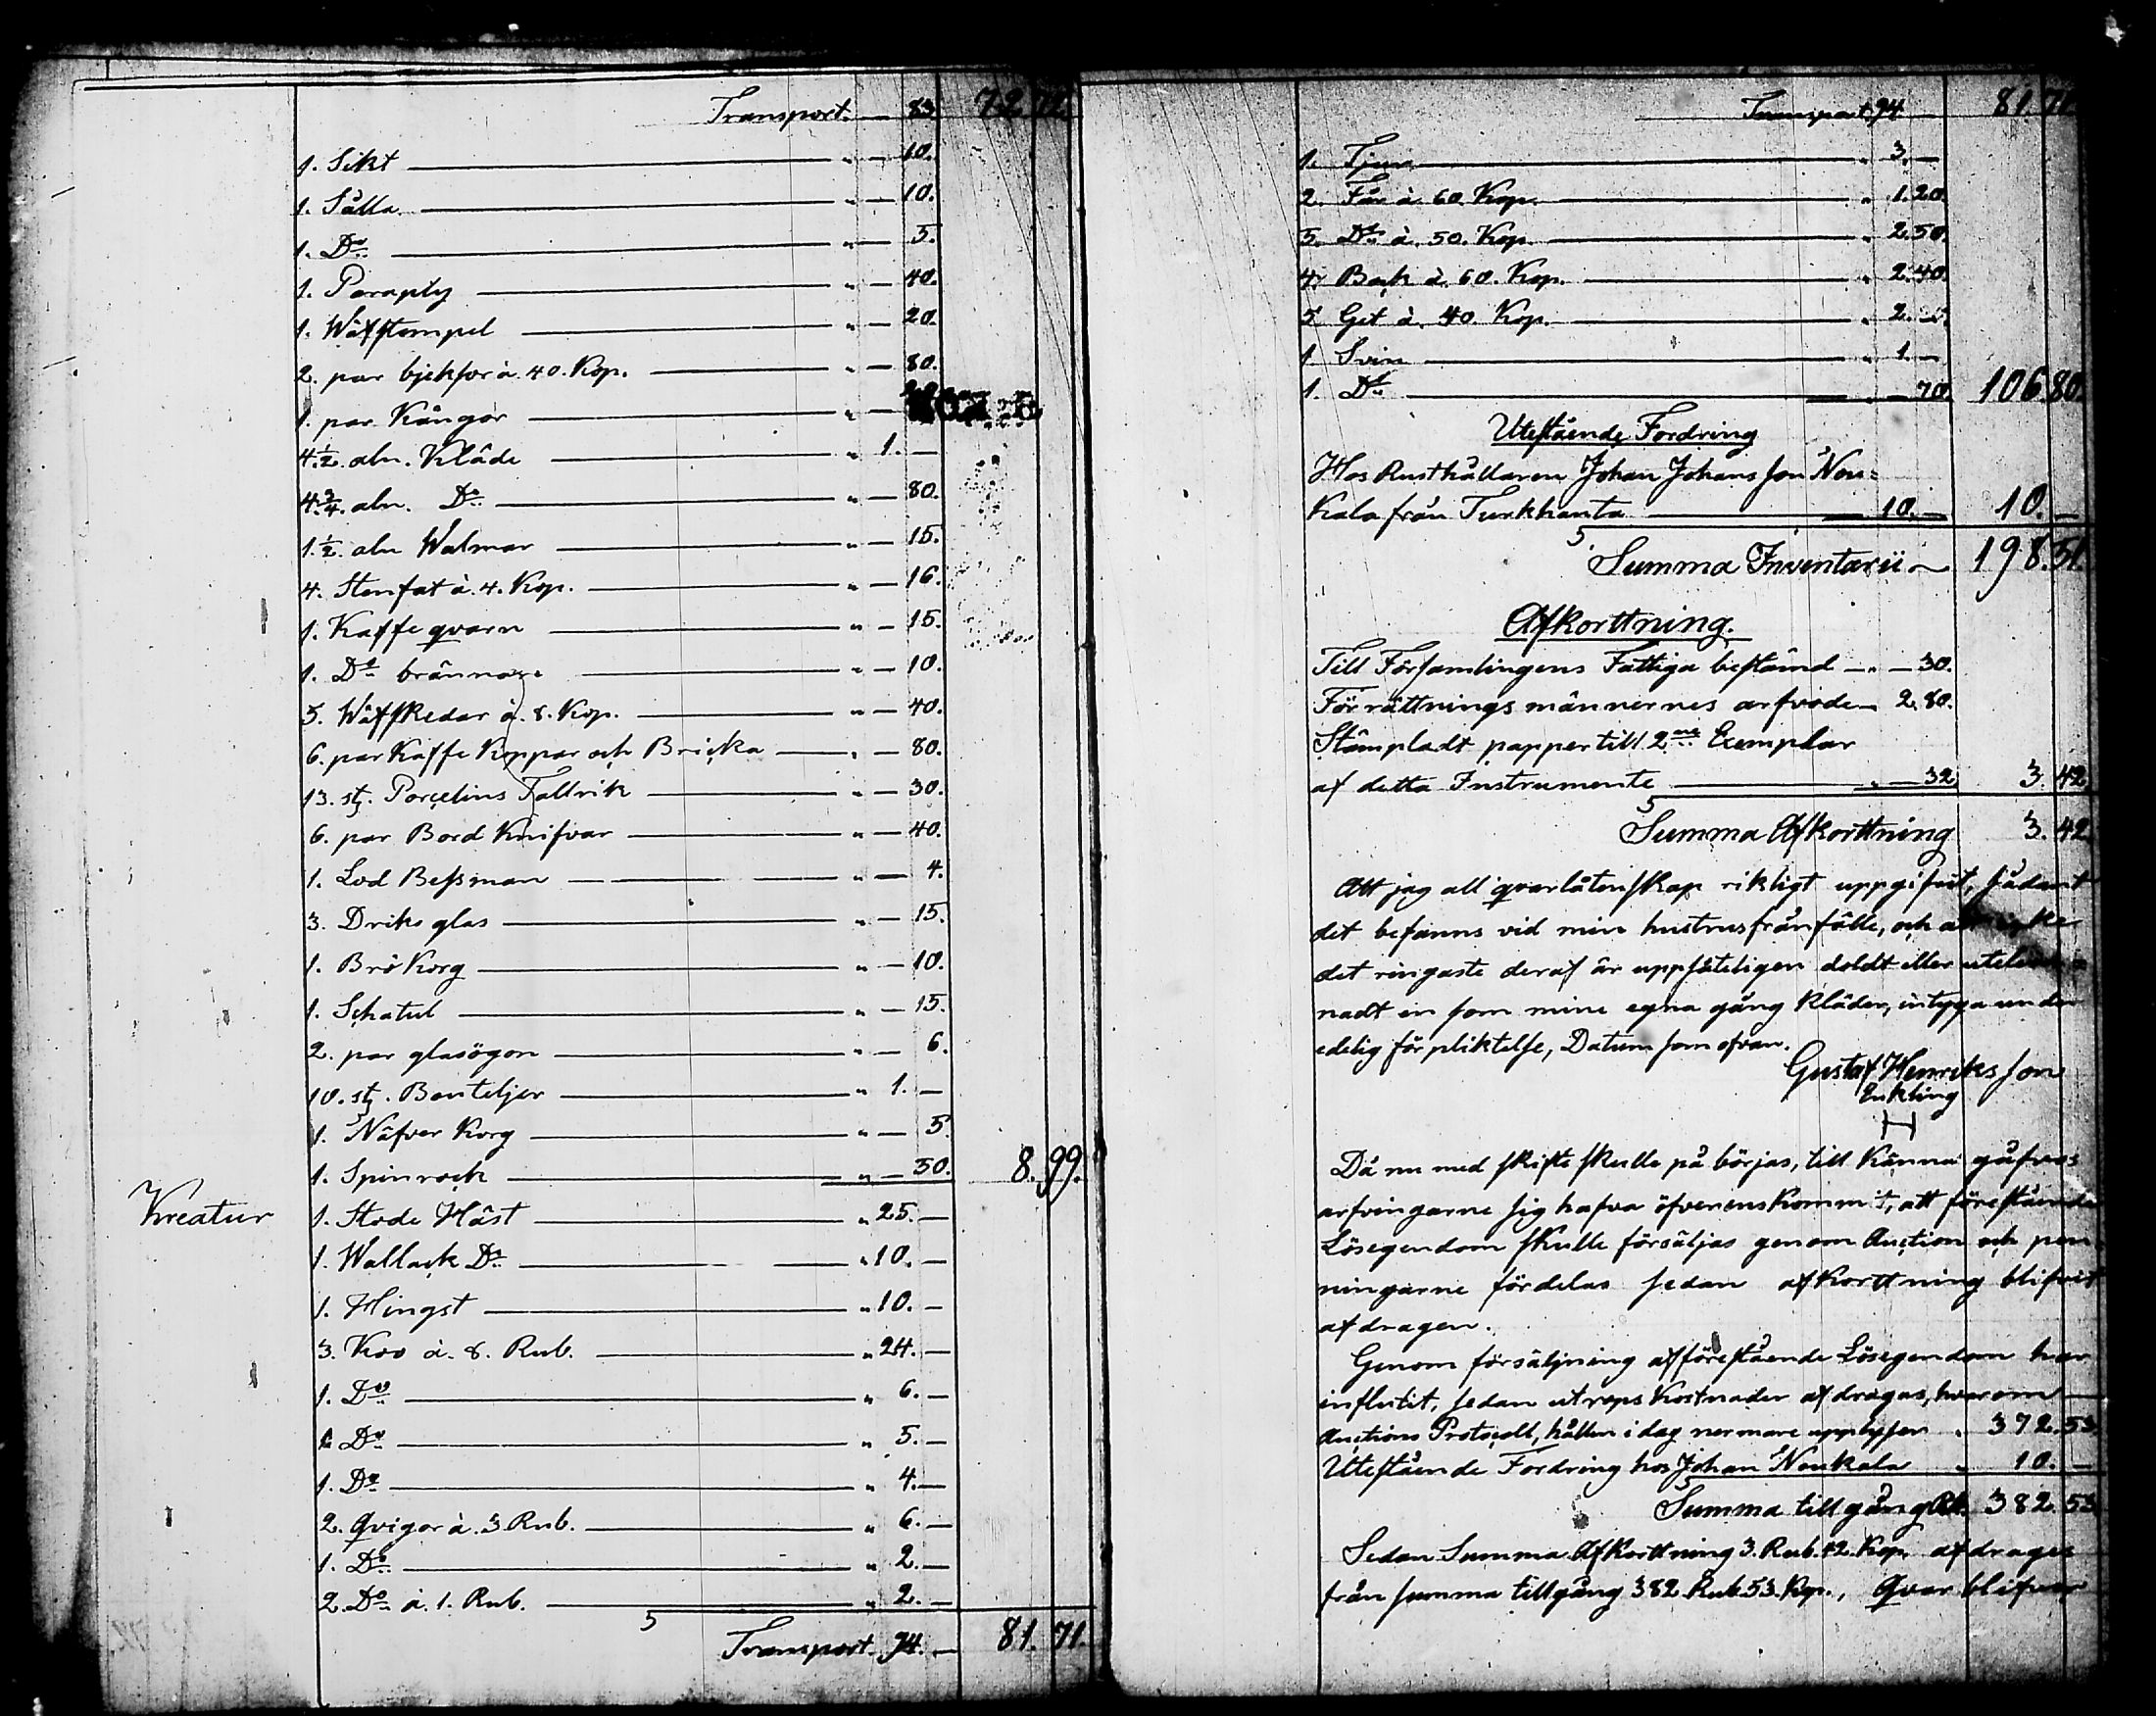 Transport. — 83 72. 72.
1. Sikt — " — 10.
1. Sålla — " — 10.
1. Do — " — 5.
1. Paraply — " — 40.
1. Wäfstempel — " — 20.
2. par à 40. Kop. — " — 80.
1. par Kängor — "
4.½. aln. Kläde — " 1. —
4.¾. aln. Do — " — 80.
1.½. aln Walmar — " — 15.
4. Stenfat à. 4. Kop. — " — 16.
1. Kaffe qvarn — " — 15.
1. Do brännare — " — 10.
5. Wäfskedar à. 8. Kop. — " — 40.
6. par Kaffe Koppar och Bricka — " — 80.
13. st. Porcelins Tallrik — " — 30.
6. par Bord Knifvar — " — 40.
1. Lod Bessman — " — 4.
3. Driks glas — " — 15.
1. Brö Korg — " — 10.
1. Schatul — " — 15.
2. par glasögon — " — 6.
10. st. Bouteljer — " 1. —
1. Näfver Korg — " — 5.
1. Spinrock — " — 50. 8. 99.
Kreatur
1. Stode Häst — " 25. —
1. Wallack Do — " 10. —
1. Hingst — " 10. —
3. Koo à. 8. Rub. — " 24. —
1. Do — " 6. —
1. Do — " 5. —
1. Do — " 4. —
2. Qvigor à. 3 Rub. — " 6. —
1. Do — " 2. —
2. Do à. 1. Rub. — " 2. —
Transport. 94. — 81. 71.
Transport. 94. 81. 71.
1. Tjur — " 3. —
2. Får à. 60. Kop. — " 1. 20.
5. Do à. 50. Kop. — " 2. 50.
4. Bock à. 60. Kop. — " 2. 40.
5. Get à. 40. Kop. — " 2. —
1. Svin — " 1. —
1. Do — " — 70. 106. 80.
Utestående Fordring
Hos Rusthållaren Johan Johansson Nou=
kala från Turkhanta — 10. — 10. —
Summa Inventarii — 198. 51.
Afkorttning.
Till Församlingens Fattiga bestånd — " — 30.
Förrättningsmännernes arfvode — 2. 80.
Stämpladt papper till 2ne Exemplar
af detta Instrumente — " — 32 3. 42
Summa Afkorttning 3. 42
Att jag all qvarlåtenskap riktigt uppgifvit, sådant
det befanns vid min hustrus frånfälle, och att icke
det ringaste deraf är uppsåteligen doldt eller utelem=
nadt en som mine egna gång kläder, intyga under
edelig förpliktelse, Datum som ofvan.
Gustaf Henriksson
Enkling
Då nu med skifte skulle på börjas, till känna gåfvos
arfvingarne sig hafva öfverenskommit, att förestående
Lösegendom skulle försäljas genom Auction och pen=
ningarne fördelas sedan afkorttning blifvit
afdragen.
Genom försäljning af förestående Lösegendom har
influtit, sedan utrops kostnader afdragas, hvarom
Auctions Protocoll, hållen i dag nermare upplyser " 372. 53
Utestående Fordring hos Johan Noukala " 10. —
Summa tillgång Rb. 382. 53
Sedan Summa Afkorttning 3. Rub. 42. Kop. afdrages
från summa tillgång 382. Rub. 53. Kop., Qvar blifver